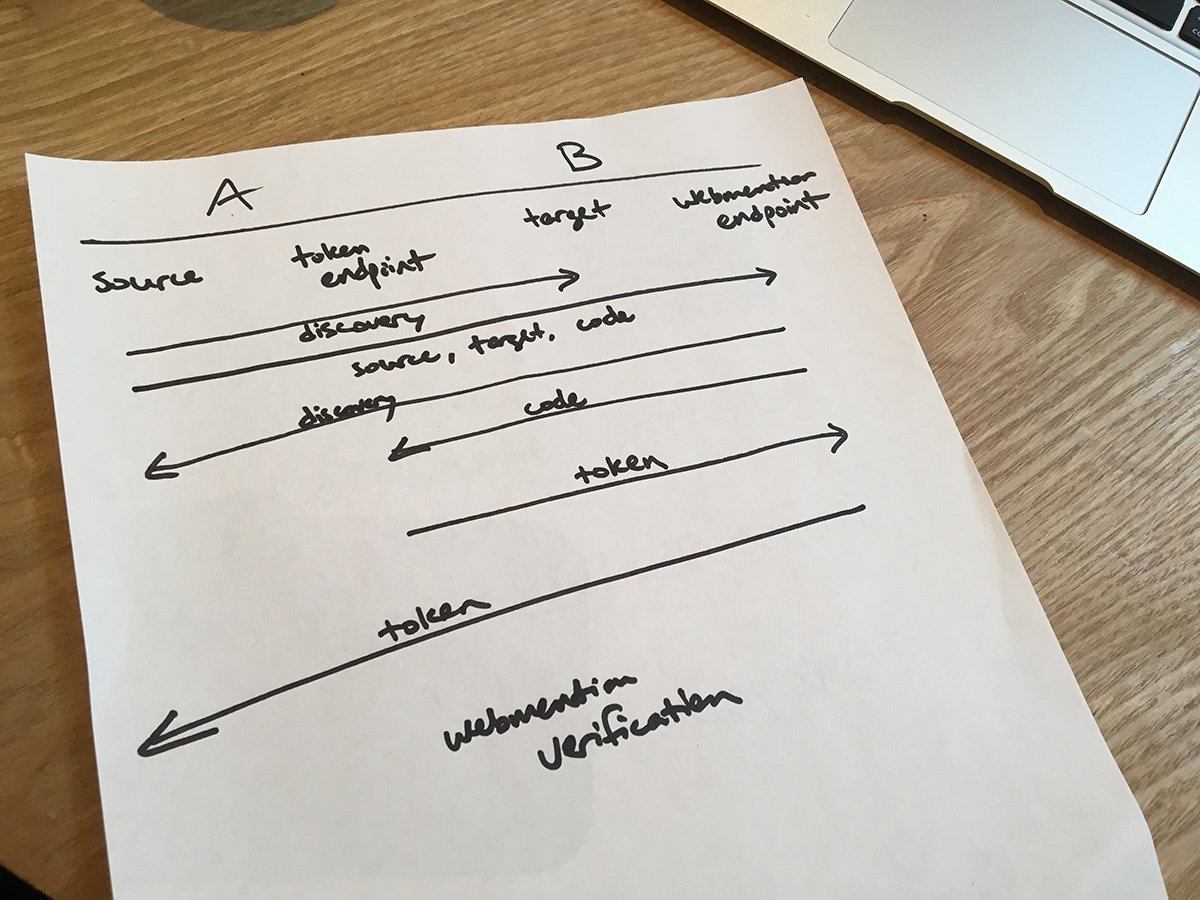 A
B
source
token
endpoint
target
webmention
endpoint
discovery
source, target, code
discovery
code
token
token
webmention
verification